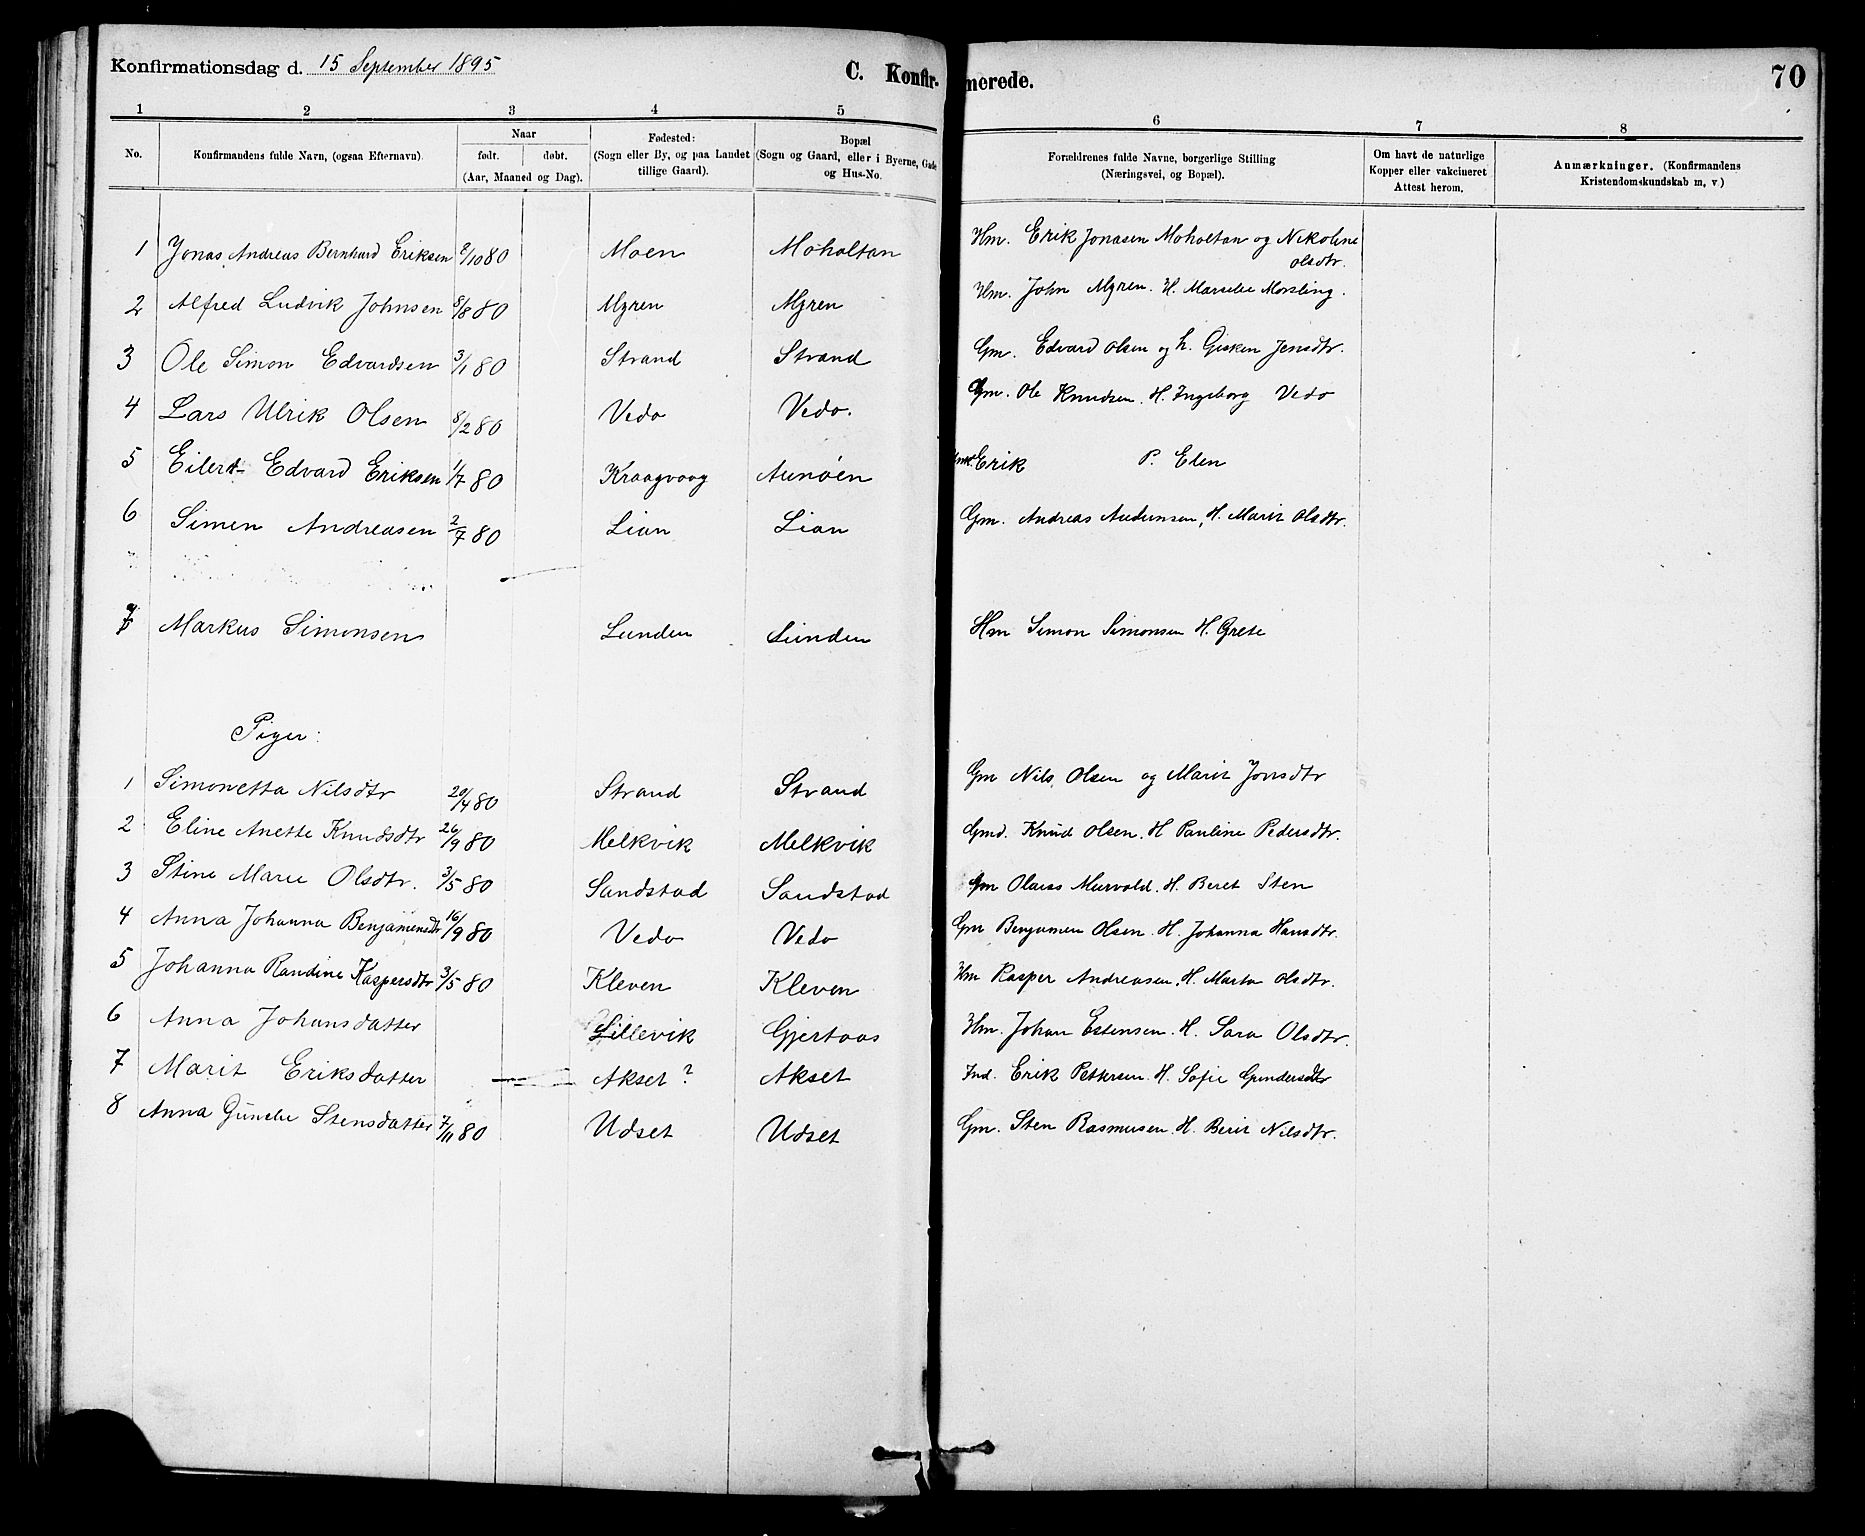 Konfirmationsdag d. 15 September 1895 C. Konfir- merede. 70
1 2 3 4 5 6 7 8
No. Konfirmandens fulde Navn, (ogsaa Efternavn) Naar født. døbt. (Aar, Maaned og Dag). Fødested: (Sogn eller By, og paa Landet tillige Gaard). Bopæl (Sogn og Gaard, eller i Byerne, Gade og Hus-No. Forældrenes fulde Navne, borgerlige Stilling (Næringsvei, og Bopæl). Om havt de naturlige Kopper eller vakcineret Attest herom. Anmærkninger. (Konfirmandens Kristendomskundskab m, v)
1 Jonas Andreas Bernhard Eriksen /10 80 Moen Moholtan Hm. Erik Jonasen Moholtan og Nikoline
Olsdtr.
2 Alfred Ludvik Johnsen 8/8 80 Myren Myren Hm. John Myren. H.
3 Ole Simon Edvardsen 3/1 80 Strand Strand Gm. Edvard Olsen og h. Gisken Jensdtr.
4 Lars Ulrik Olsen 8/2 80 Vedo Vedo. Gm. Ole Knudsen. H. Ingeborg Vedo
5 Eilert Edvard Eriksen 1/7 80 Kraagvaag Aunøen Erik P. Elen
6 Simen Andreasen 2/7 80 Lian Lian Gm. Andreas Audunsen, H. Marit Olsdtr.
7 Markus Simonsen Lunden Lunden Hm Simon Simonsen H. Grete
Piger:
1 Simonetta Nilsdtr 20/4 80 Strand Strand Gm Nils Olsen og Marit Jonsdtr
2 Eline Anette Knudsdtr 26/9 80 Melkvik Melkvik Gmd. Knud Olsen. H Pauline Pedersdtr.
3 Stine Marie Olsdtr. 3/5 80 Sandstad Sandstad Gm Olaus Murvold. H. Beret Sten
4 Anna Johanna Benjamensdtr 16/9 80 Vedo Vedo Gm Benjamen Olsen. H. Johanna Hansdtr.
5 Johanna Randine Kaspersdtr 3/5 80 Kleven Kleven Hm Kasper Andreasen. H. Marta Olsdtr.
6 Anna Johansdatter Lillevik Gjertaas Hm. Johan Estensen. H. Sara Olsdtr.
7 Marit Eriksdatter Akset ? Akset Ind. Erik Pettersen. H. Sofie Gundersdtr
8 Anna Stensdatter 7/11 80 Udset Udset Gm. Sten Rasmusen. H. Berit Nilsdtr.